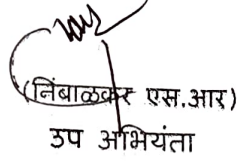 (निंबाळकर एस.आर)
उप अभियंता